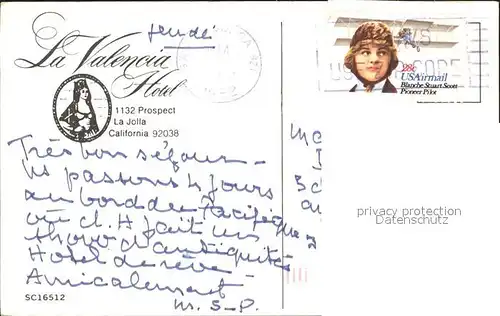 jeudi
La Valencia
Hotel
1132 Prospect
La Jolla
California 92038
Très bon séjour -
ns passons 4 jours
au bord du Pacifique
où cl. H fait un
show d'antiquités
Hotel de rêve -
Amicalement
M. S-P.
SC16512
28c
USAirmail
Blanche Stuart Scott
Pioneer Pilot
US
privacy protection
Datenschutz